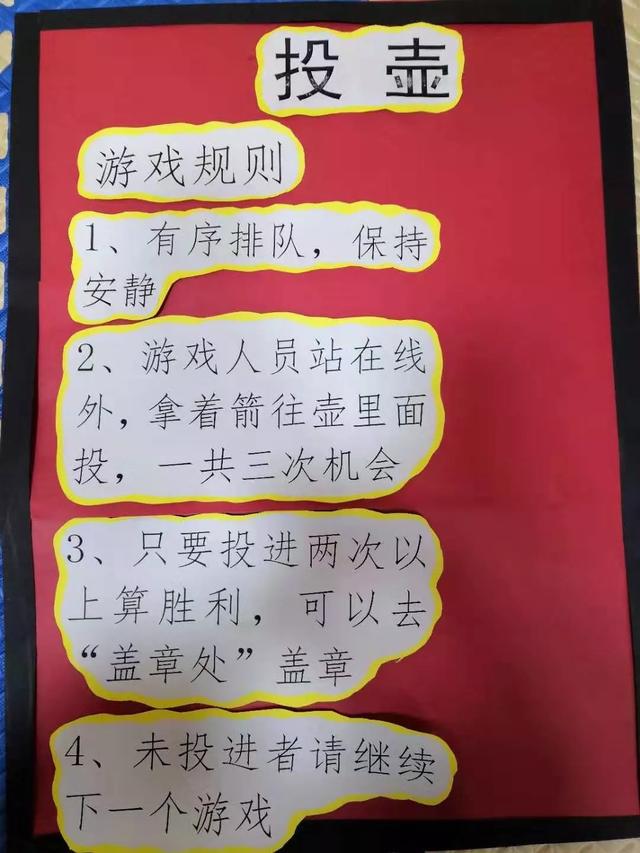 投壶
游戏规则
1、有序排队，保持
安静
2、游戏人员站在线
外，拿着箭往壶里面
投，一共三次机会
3、只要投进两次以
上算胜利，可以去
“盖章处”盖章
4、未投进者请继续
下一个游戏